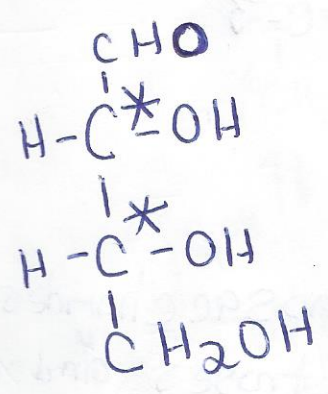 CHO
H-C*-OH
H-C*-OH
CH2OH